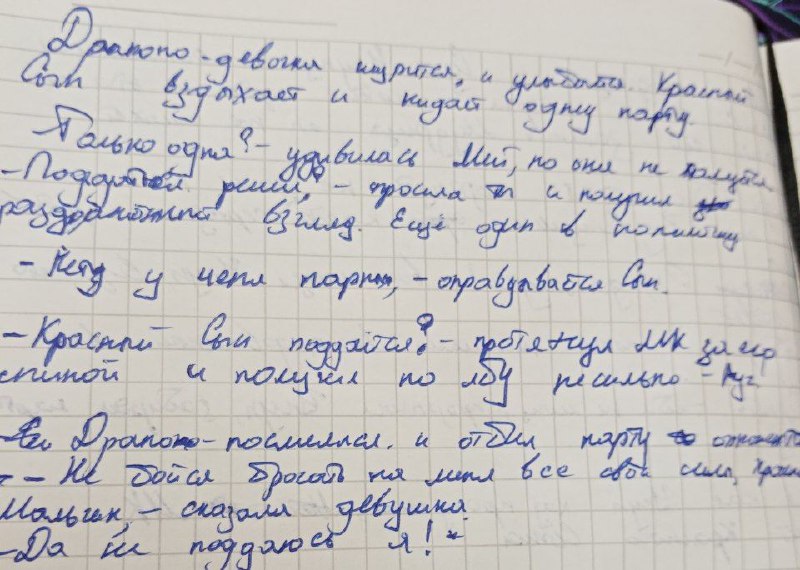 Драконо-девочка щурится, и улыбается. Красный
Сын вздыхает и кидает одну карту.
Только одна? - удивилась Мей, но она не
- Поддаться решил? - спросила и получил
раздражённый взгляд. Ещё один в копилочку
- Нету у меня парных, - оправдывается Сын.
- Красный Сын поддаётся? - протянул МК за его
спиной и получил по лбу несильно -
Драконо- посмеялся. и отбил карту
- Не бойся бросать на меня все свои силы,
Мальчик, - сказала девушка.
- Да не поддаюсь я!